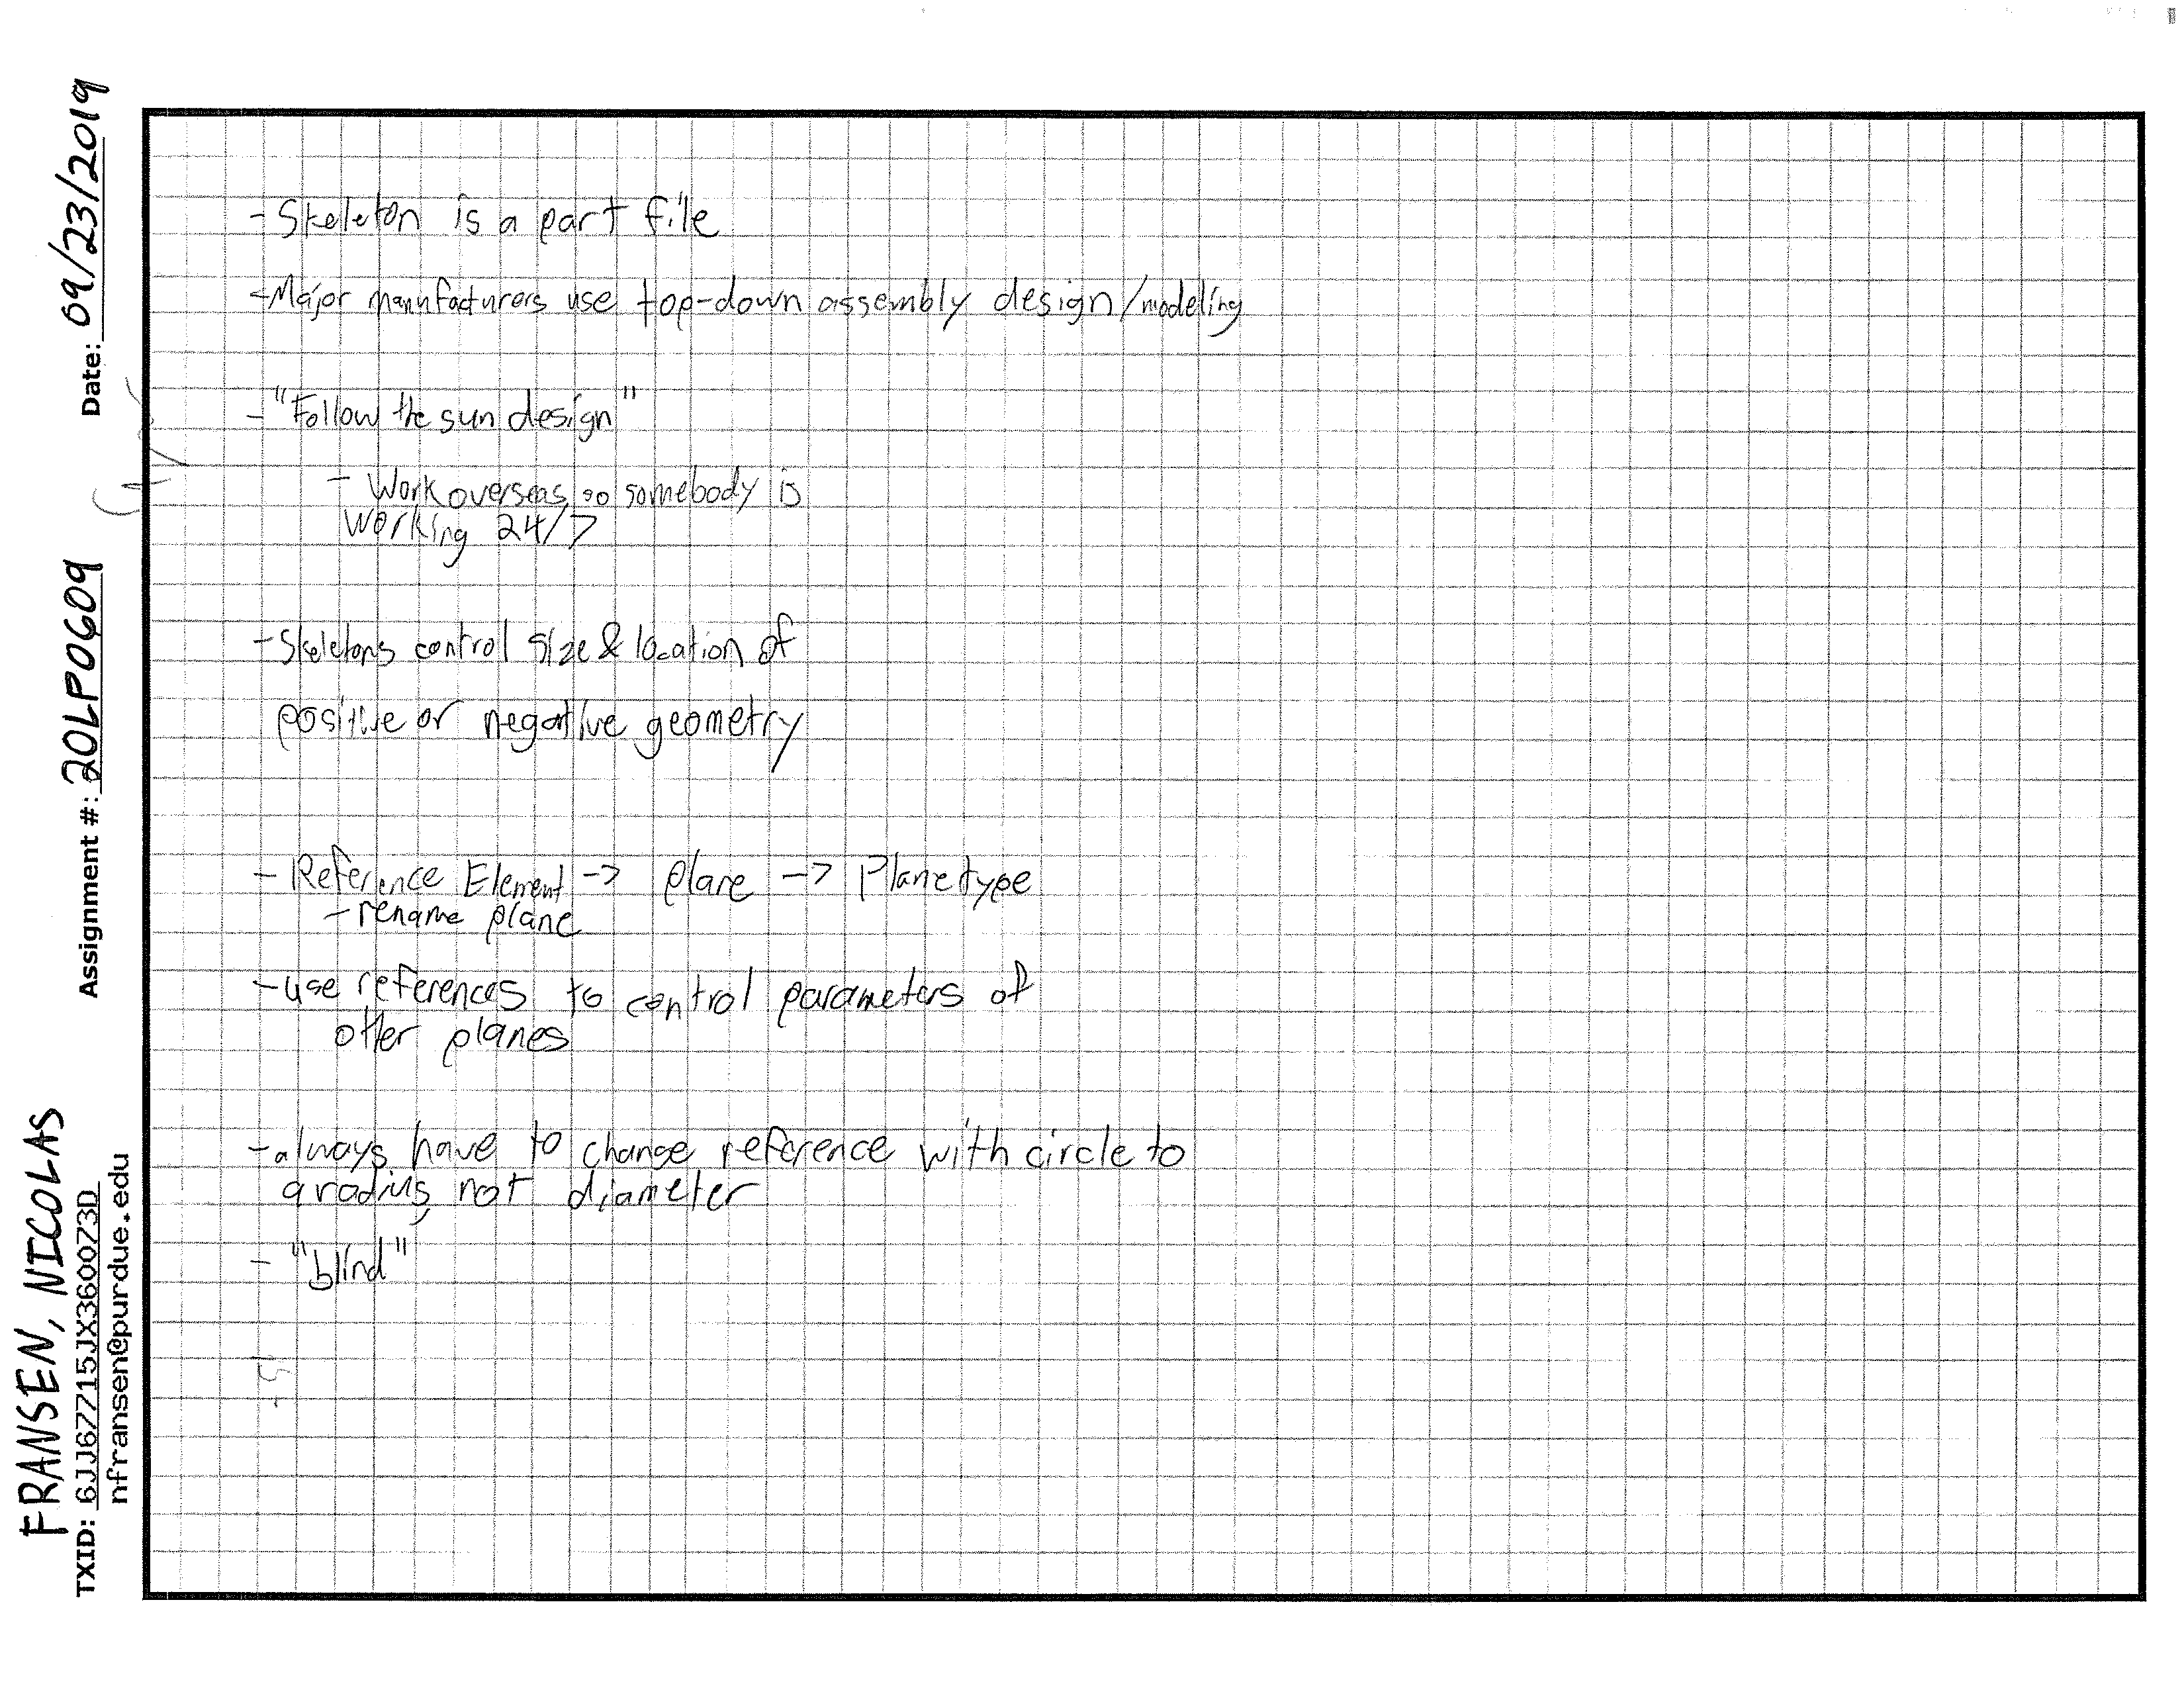 Date: 09/23/2019
Assignment #: 20LP0609
FRANSEN, NICOLAS
TXID: 6JJ67715JX360073D
nfransen@purdue.edu
- Skeleton is a part file
- Major manufacturers use top-down assembly design/modeling
- "Follow the sun design"
- Work overseas so somebody is
working 24/7
- Skeletons control size & location of
positive or negative geometry
- Reference Element -> plane -> Plane type
- rename plane
- use references to control parameters of
other planes
- always have to change reference with circle to
a radius, not diameter
- "blind"